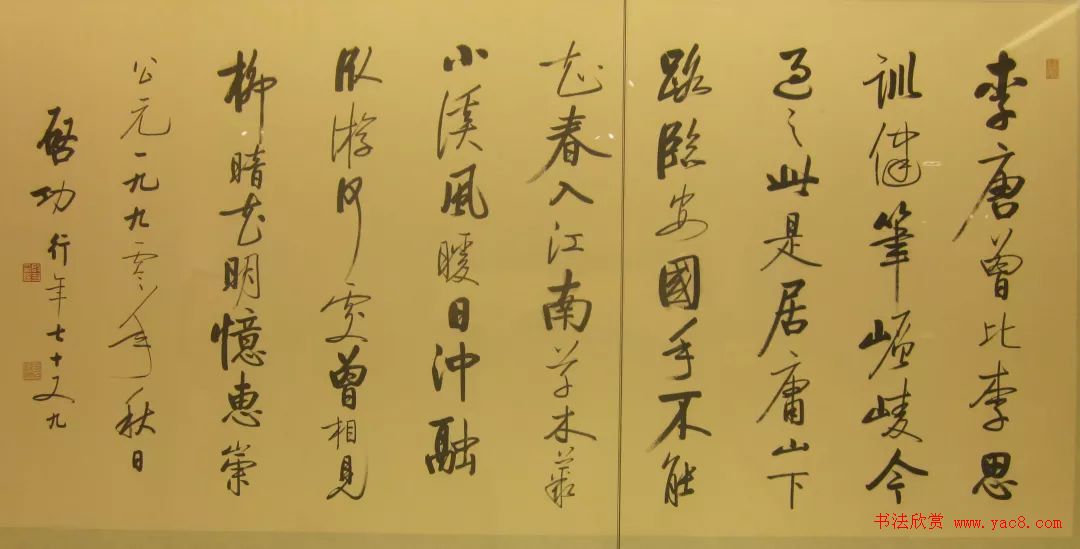 李唐曾比李思
訓健筆崚今
過之此是居庸山下
路臨安國手不能
知春入江南草木叢
小溪風暖日沖融
臥游何處曾相見
柳暗花明憶惠崇
公元一九九零年秋日
啓功行年七十又九
书法欣赏 www.yac8.com